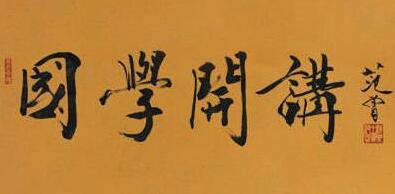 國學開講
范曾